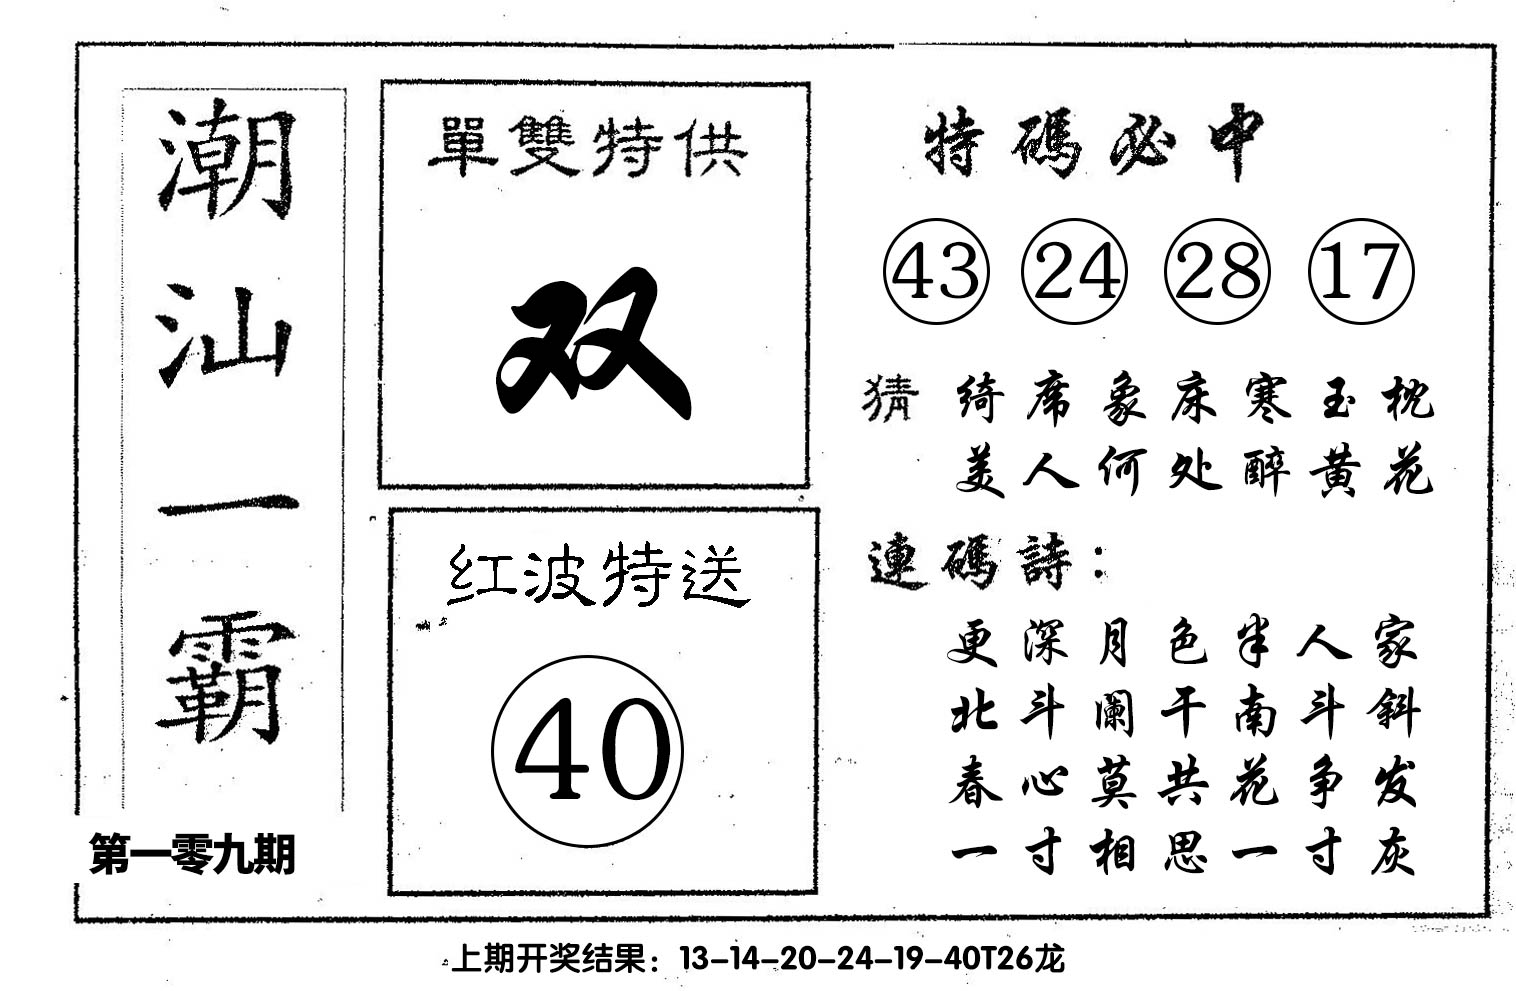 潮汕一霸
第一零九期
單雙特供
双
红波特送
40
特碼必中
43 24 28 17
猜 绮席象床寒玉枕
美人何处醉黄花
連碼詩：
更深月色半人家
北斗阑干南斗斜
春心莫共花争发
一寸相思一寸灰
上期开奖结果：13-14-20-24-19-40T26龙